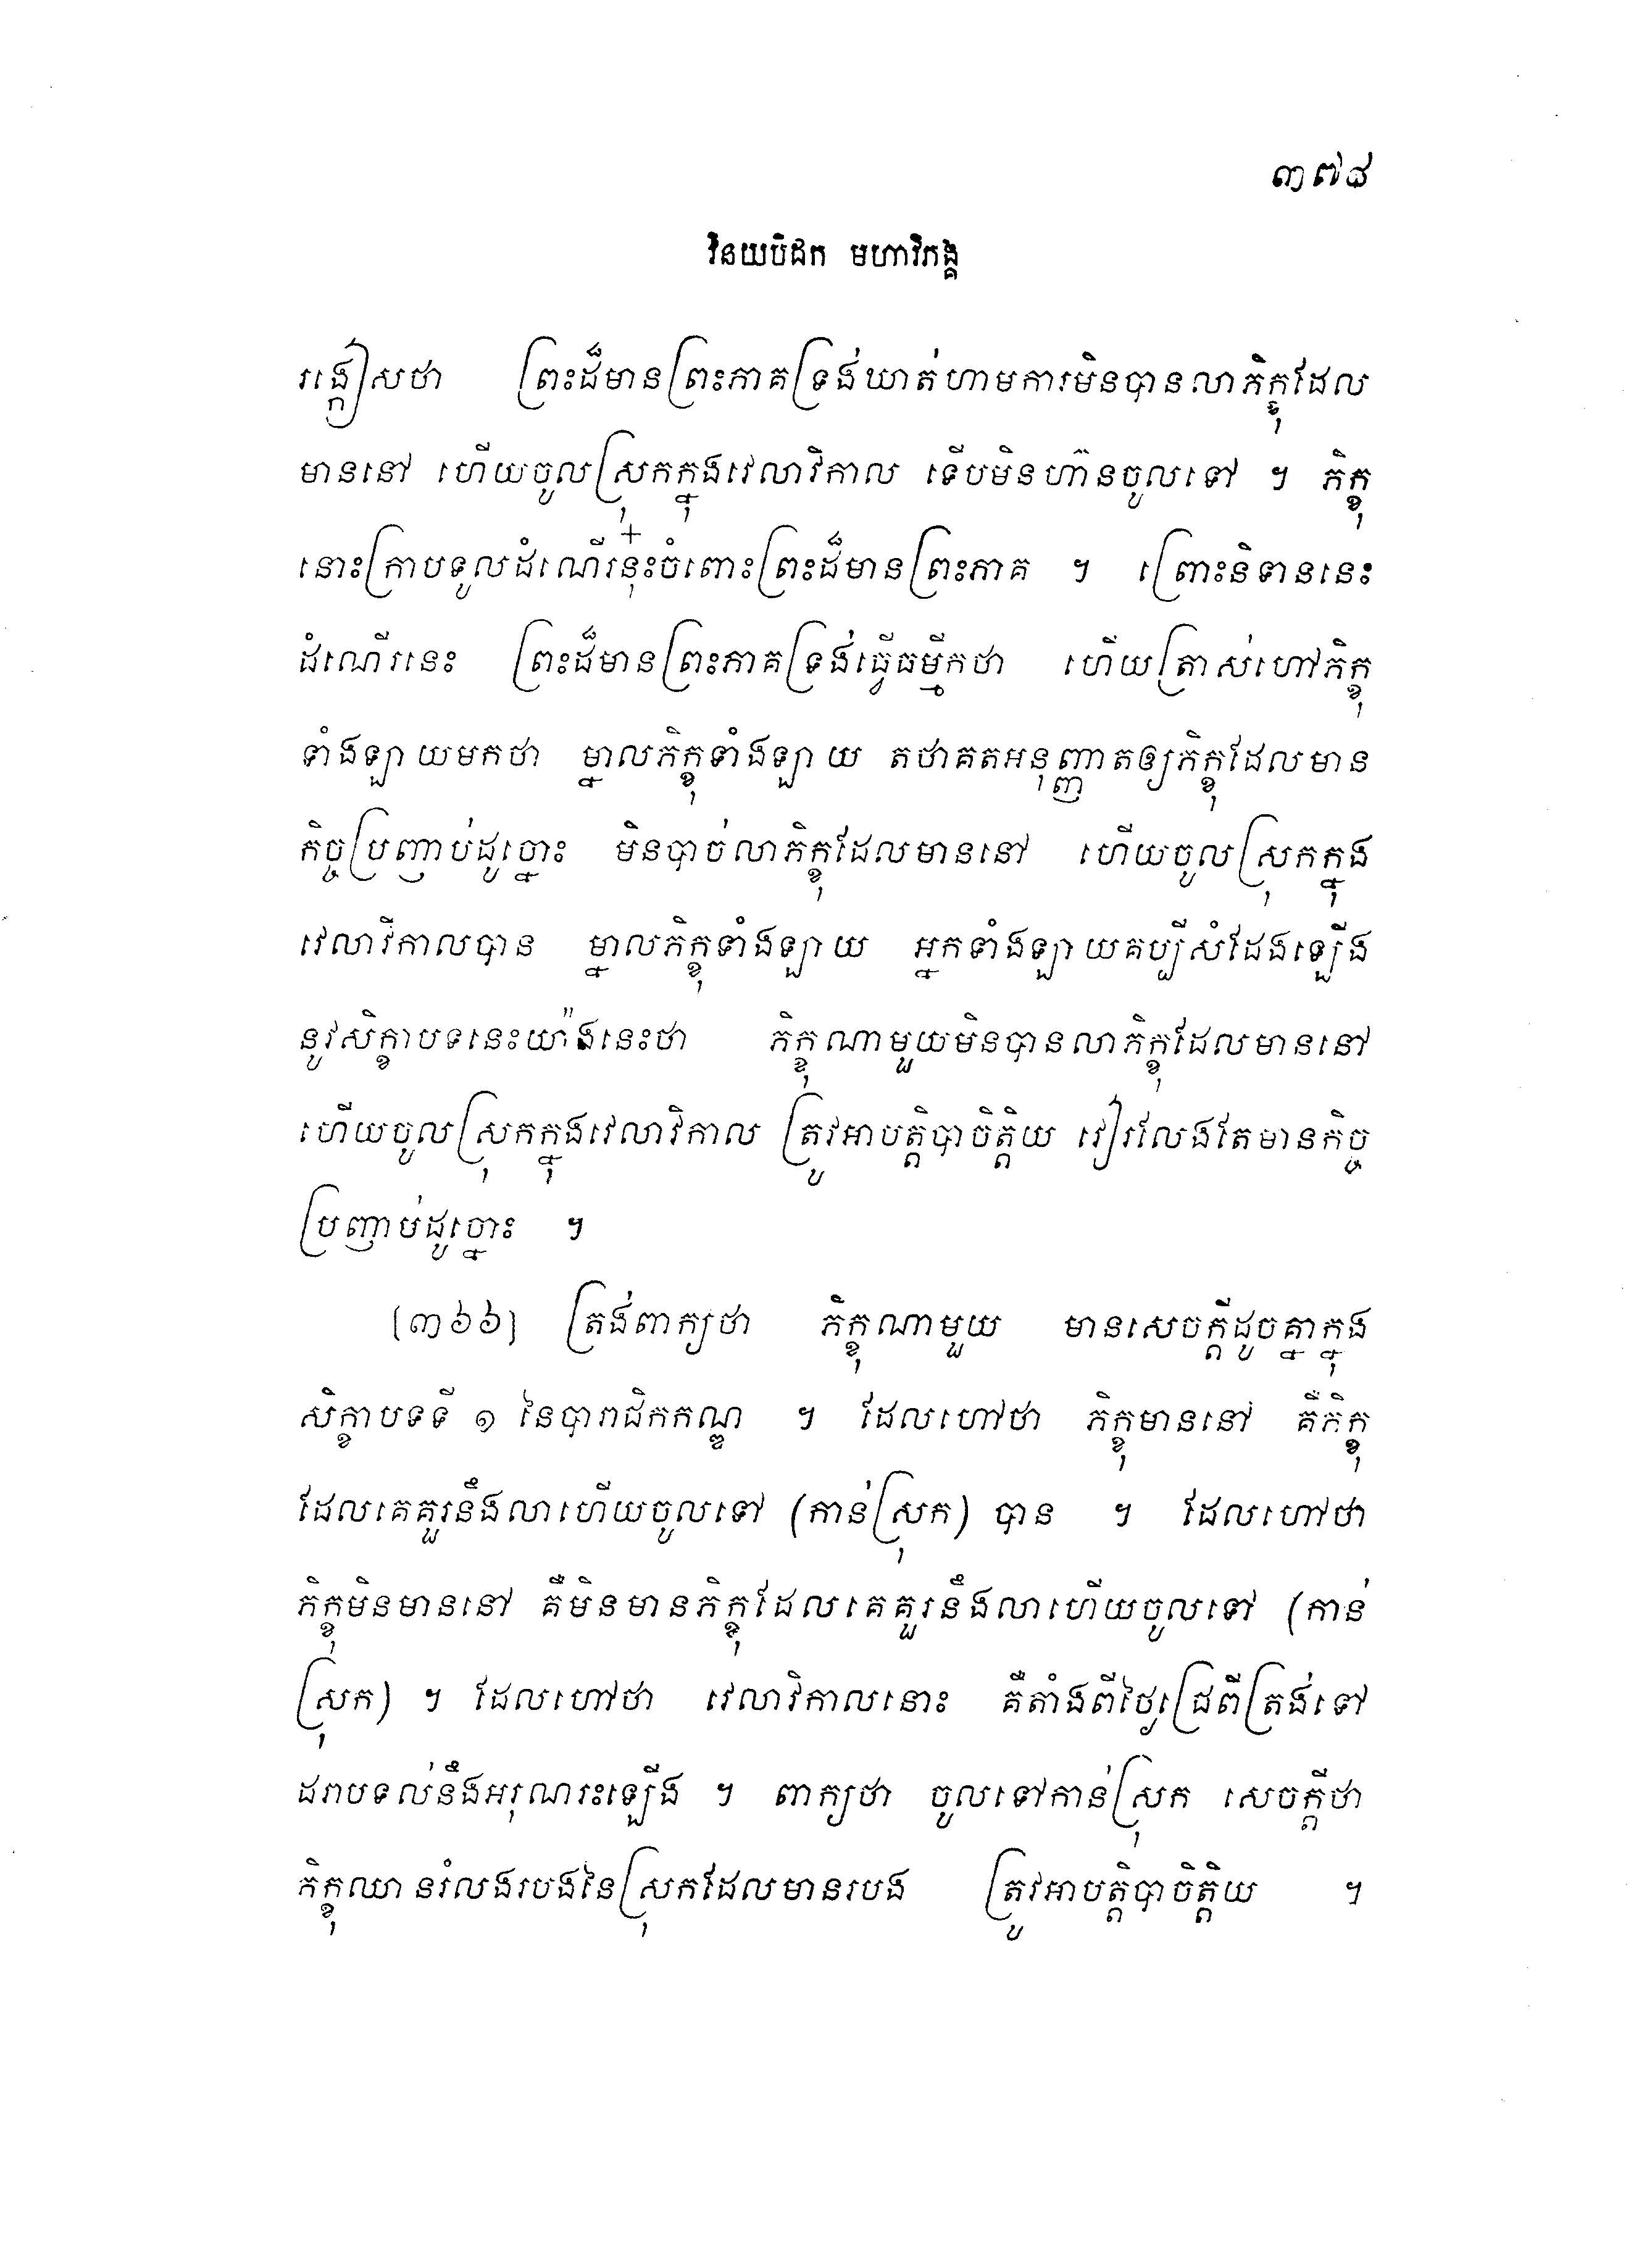 ៣៧៨
វិនយបិដក មហាវិភង្គ
រង្កៀសថា ព្រះដ៏មានព្រះភាគទ្រង់ឃាត់ហាមការមិនបានលាភិក្ខុដែល
មាននៅ ហើយចូលស្រុកក្នុងវេលាវិកាល ទើបមិនហ៊ានចូលទៅ ។ ភិក្ខុ
នោះក្រាបទូលដំណើរនុ៎ះចំពោះព្រះដ៏មានព្រះភាគ ។ ព្រោះនិទាននេះ
ដំណើរនេះ ព្រះដ៏មានព្រះភាគទ្រង់ធ្វើធម្មីកថា ហើយត្រាស់ហៅភិក្ខុ
ទាំងឡាយមកថា ម្នាលភិក្ខុទាំងឡាយ តថាគតអនុញ្ញាតឲ្យភិក្ខុដែលមាន
កិច្ចប្រញាប់ដូច្នោះ មិនបាច់លាភិក្ខុដែលមាននៅ ហើយចូលស្រុកក្នុង
វេលាវិកាលបាន ម្នាលភិក្ខុទាំងឡាយ អ្នកទាំងឡាយគប្បីសំដែងឡើង
នូវសិក្ខាបទនេះយ៉ាងនេះថា ភិក្ខុណាមួយមិនបានលាភិក្ខុដែលមាននៅ
ហើយចូលស្រុកក្នុងវេលាវិកាល ត្រូវអាបត្តិបាចិត្តិយ វៀរលែងតែមានកិច្ច
ប្រញាប់ដូច្នោះ ។
(៣៦៦) ត្រង់ពាក្យថា ភិក្ខុណាមួយ មានសេចក្តីដូចគ្នាក្នុង
សិក្ខាបទទី ១ នៃបារាជិកកណ្ឌ ។ ដែលហៅថា ភិក្ខុមាននៅ គឺភិក្ខុ
ដែលគេគួរនឹងលាហើយចូលទៅ (កាន់ស្រុក) បាន ។ ដែលហៅថា
ភិក្ខុមិនមាននៅ គឺមិនមានភិក្ខុដែលគេគួរនឹងលាហើយចូលទៅ (កាន់
ស្រុក) ។ ដែលហៅថា វេលាវិកាលនោះ គឺតាំងពីថ្ងៃជ្រេពីត្រង់ទៅ
ដរាបទល់នឹងអរុណរះឡើង ។ ពាក្យថា ចូលទៅកាន់ស្រុក សេចក្តីថា
ភិក្ខុឈានរំលងរបងនៃស្រុកដែលមានរបង ត្រូវអាបត្តិបាចិត្តិយ ។